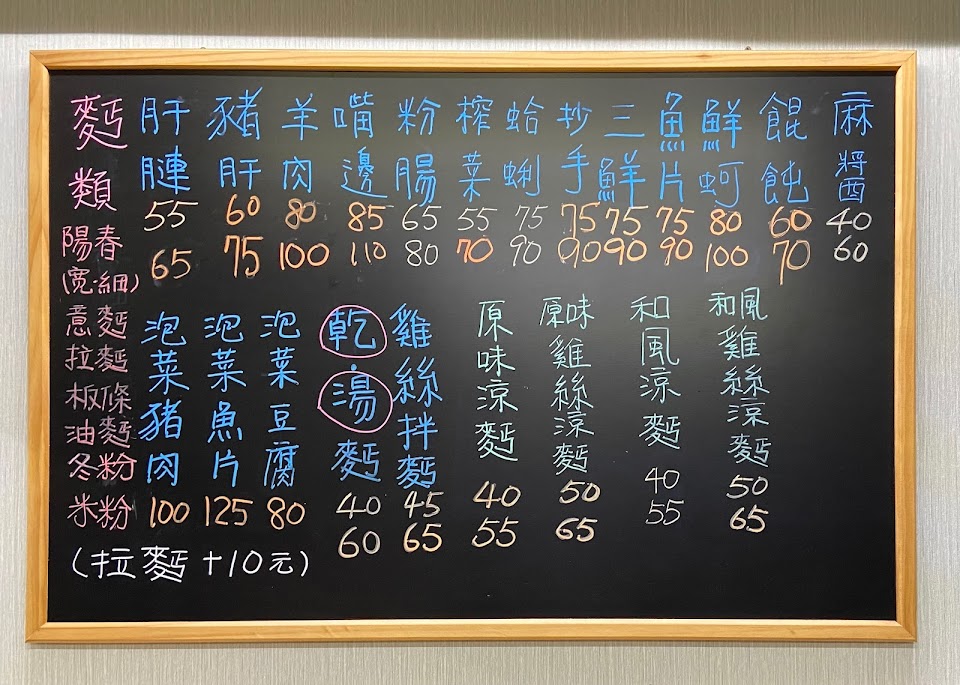 麵類
陽春
(寬·細)
意麵
拉麵
板條
油麵
冬粉
米粉
肝連
55
65
豬肝
60
75
羊肉
80
100
嘴邊
85
110
粉腸
65
80
榨菜
55
70
蛤蜊
75
90
抄手
75
90
三鮮
75
90
魚片
75
90
鮮蚵
80
100
餛飩
60
70
麻醬
40
60
泡菜豬肉
100
泡菜魚片
125
泡菜豆腐
80
乾·湯麵
40
60
雞絲拌麵
45
65
原味涼麵
40
55
原味雞絲涼麵
50
65
和風涼麵
40
55
和風雞絲涼麵
50
65
(拉麵+10元)